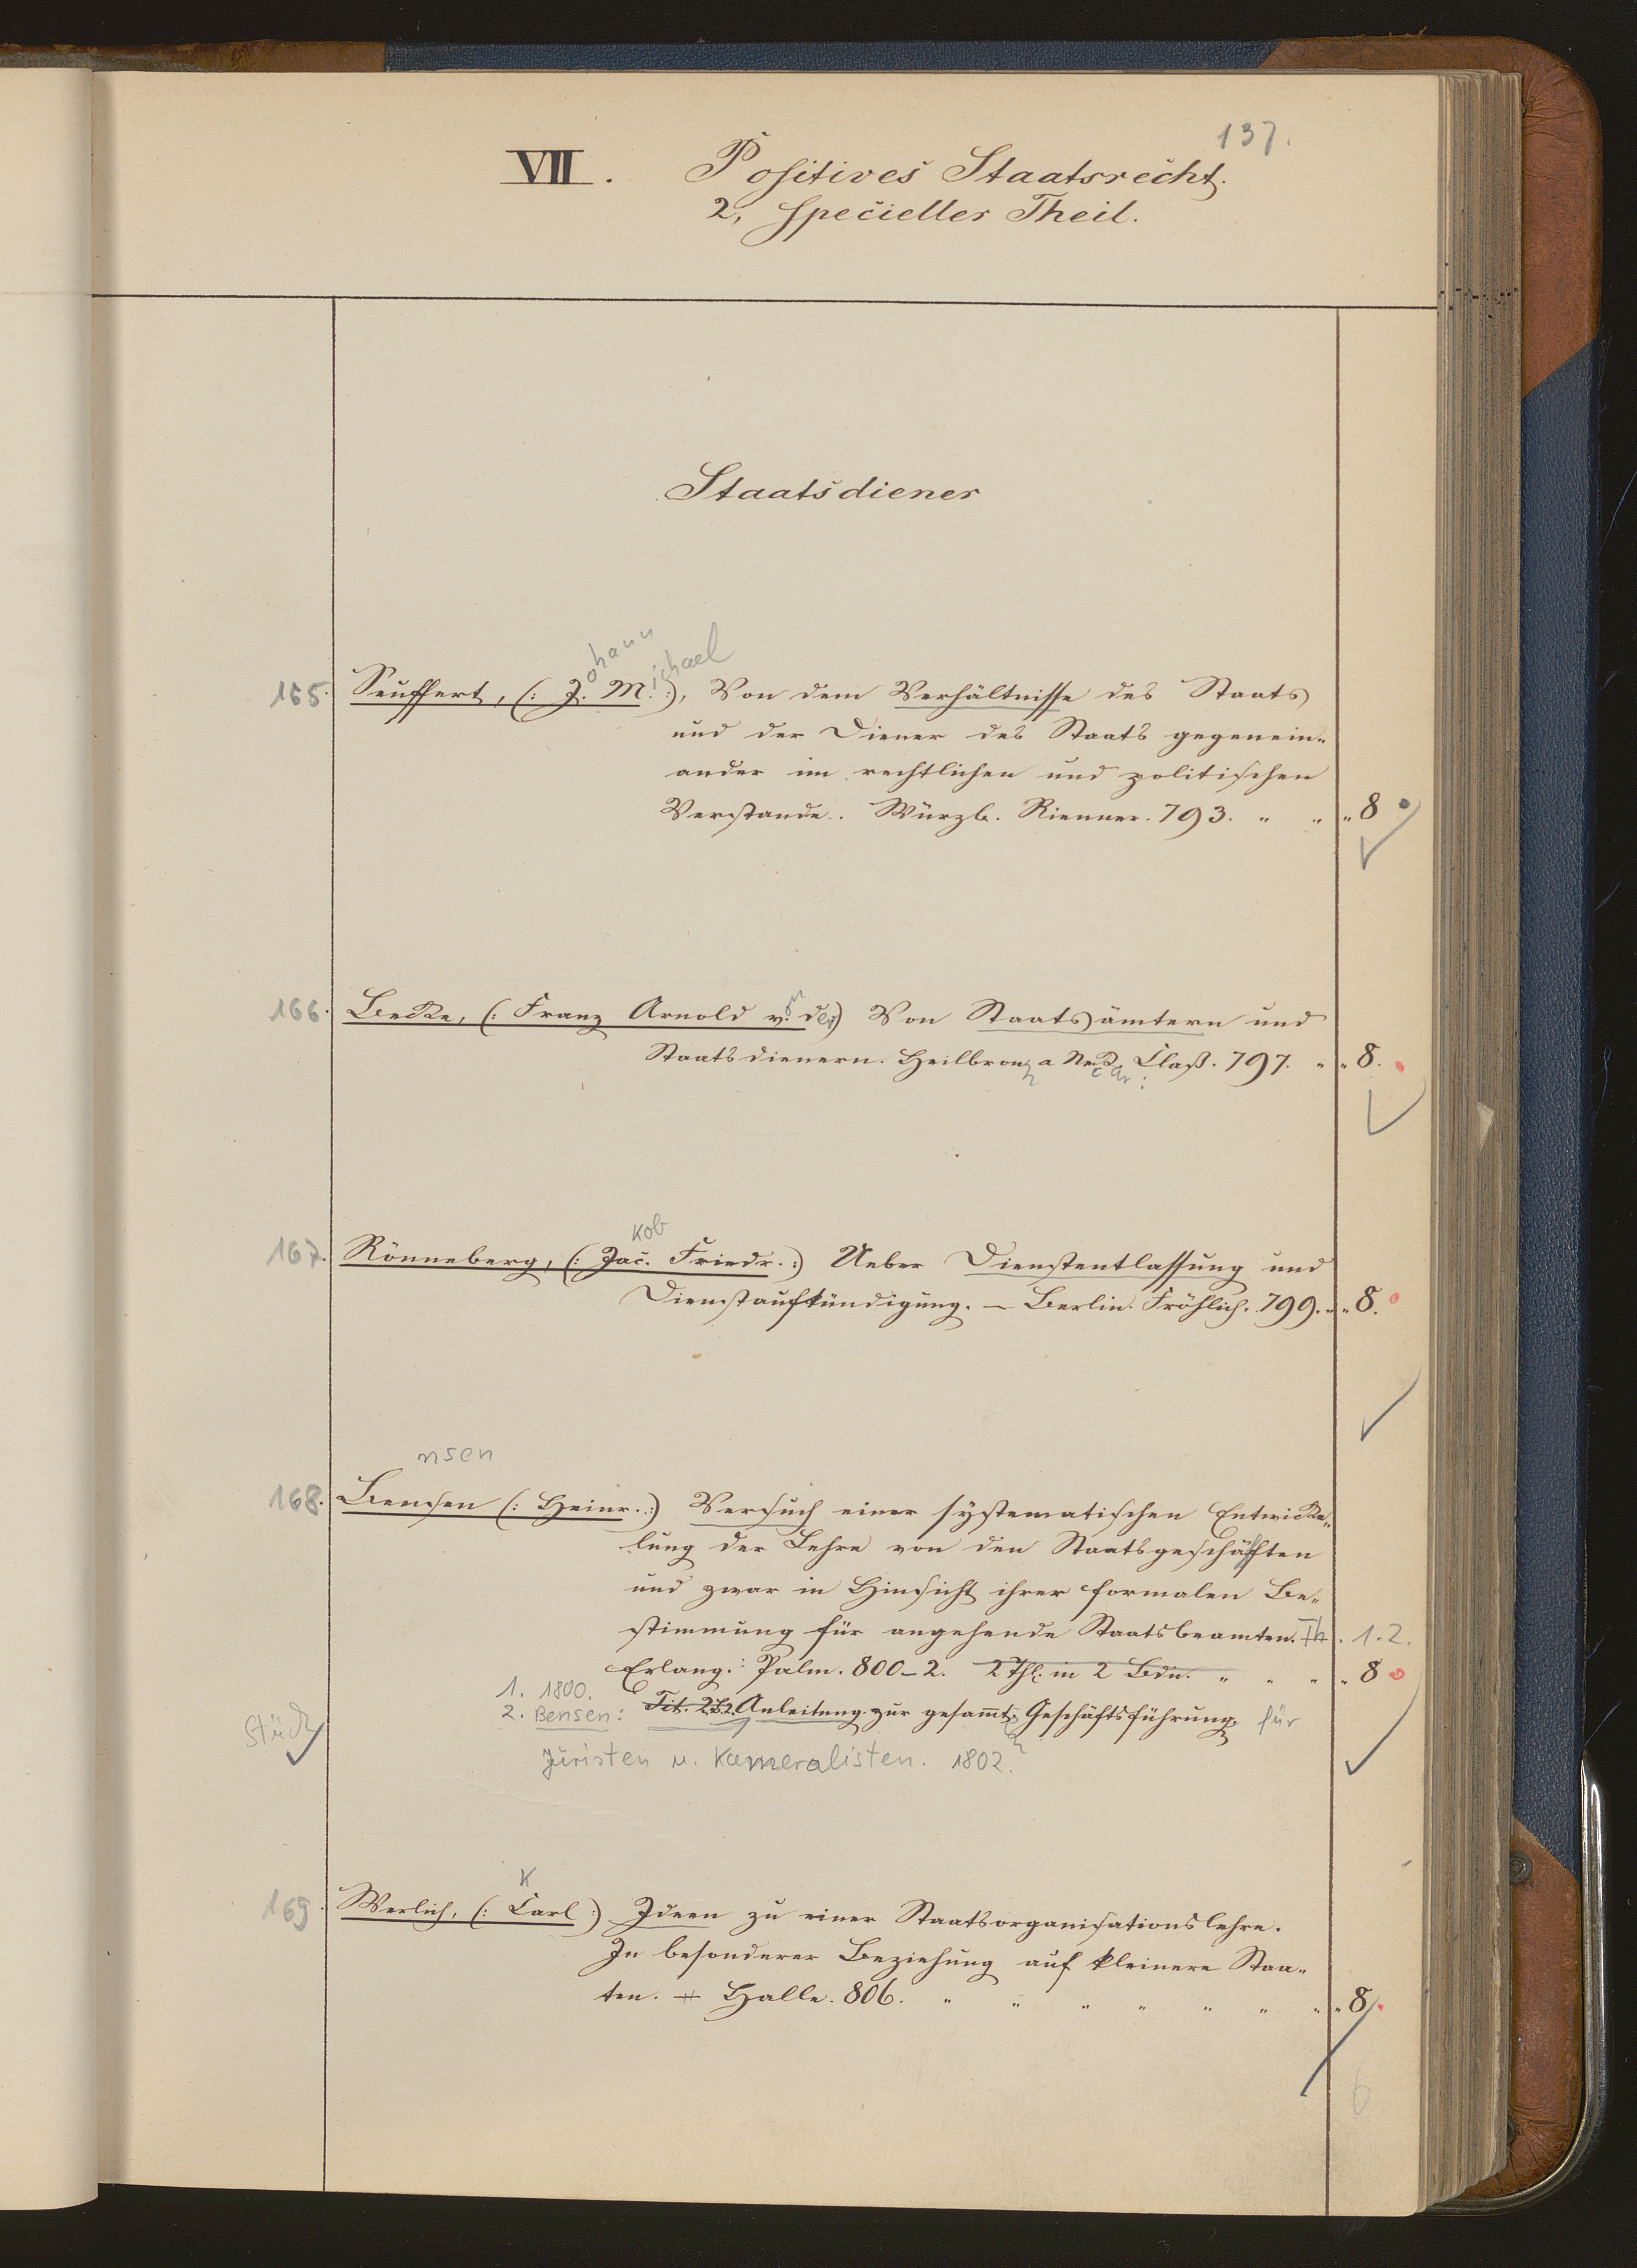 137.
VII. Positives Staatsrecht.
2, Specieller Theil.
Staatsdiener
ohann ichael
165. Seuffert, (: J. M. :), Von dem Verhältnisse des Staats
und der Diener des Staats gegenein-
ander im rechtlichen und politischen
Verstande. Würzb. Rienner. 793. " " " 8
166. Becke, (: Franz Arnold v. der :) Von Staatsämtern und
Staatsdienern. Heilbron a Neck. Claß. 797. " " 8.
n c ar :
kob
167. Rönneberg, (: Jac. Friedr. :) Ueber Dienstentlassung und
Dienstaufkündigung. — Berlin. Fröhlich. 799. " " 8.
nsen
168. Bensen (: Heinr. :) Versuch einer systematischen Entwicke-
lung der Lehre von den Staatsgeschäften
und zwar in Hinsicht ihrer formalen Be-
stimmung für angehende Staatsbeamten. Th. 1.2.
Erlang. : Palm. 800–2. 2 Thl. in 2 Bdn. " " " " 8
1. 1800.
2. Bensen: Tit. 2. Anleitung zur gesammt. Geschäftsführung. für
Stück
Juristen u. Kameralisten. 1802.
K
169. Werlich, (: Carl :) Ideen zu einer Staatsorganisationslehre.
In besonderer Beziehung auf kleinere Staa-
ten. Halle. 806. " " " " " " " " 8.
6